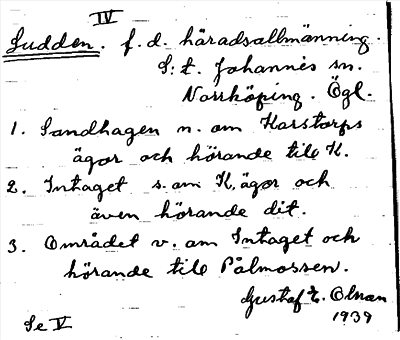 IV
Sudden. f. d. häradsallmänning.
S:t. Johannes sn.
Norrköping. Ögl.
1. Sandhagen n. om Karstorps
ägor och hörande till K.
2. Intaget s. om K, ägor och
även hörande dit.
3. Området v. om Intaget och
hörande till Pålmossen.
Gustaf t. Olman
1939
Se V